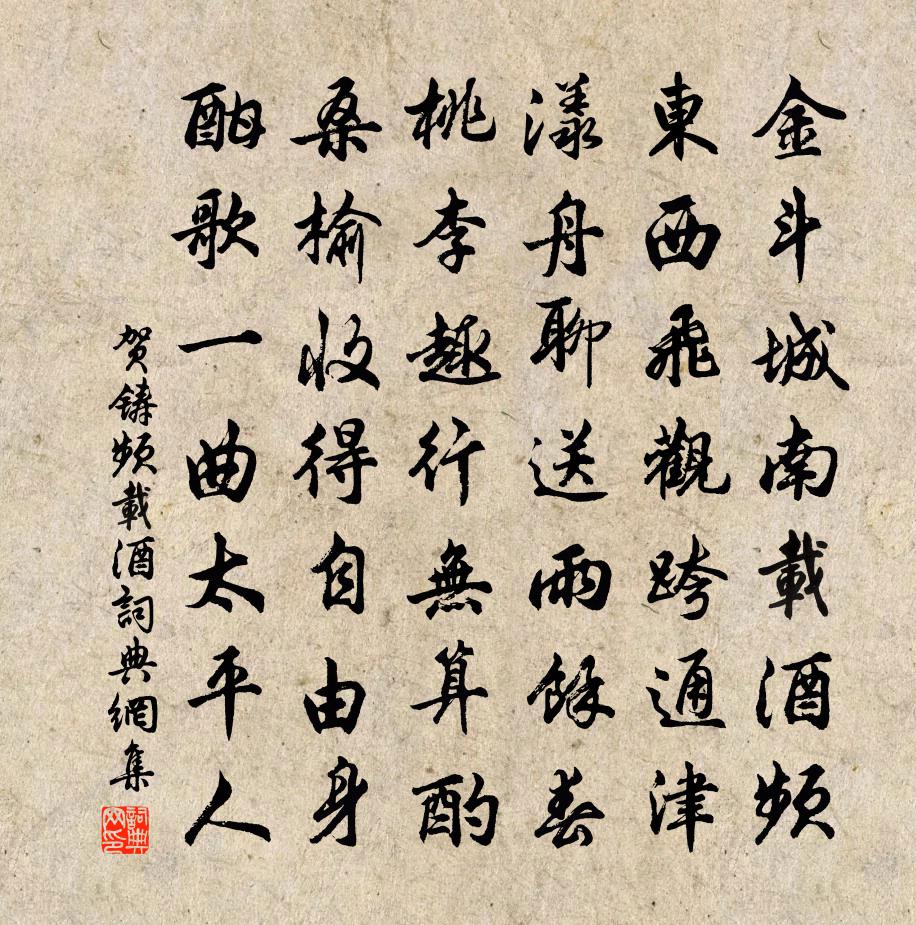 金斗城南載酒頻
東西飛觀跨通津
漾舟聊送雨餘春
桃李趣行無算酌
桑榆收得自由身
酣歌一曲太平人
賀鑄頻載酒詞典網集
詞典网印